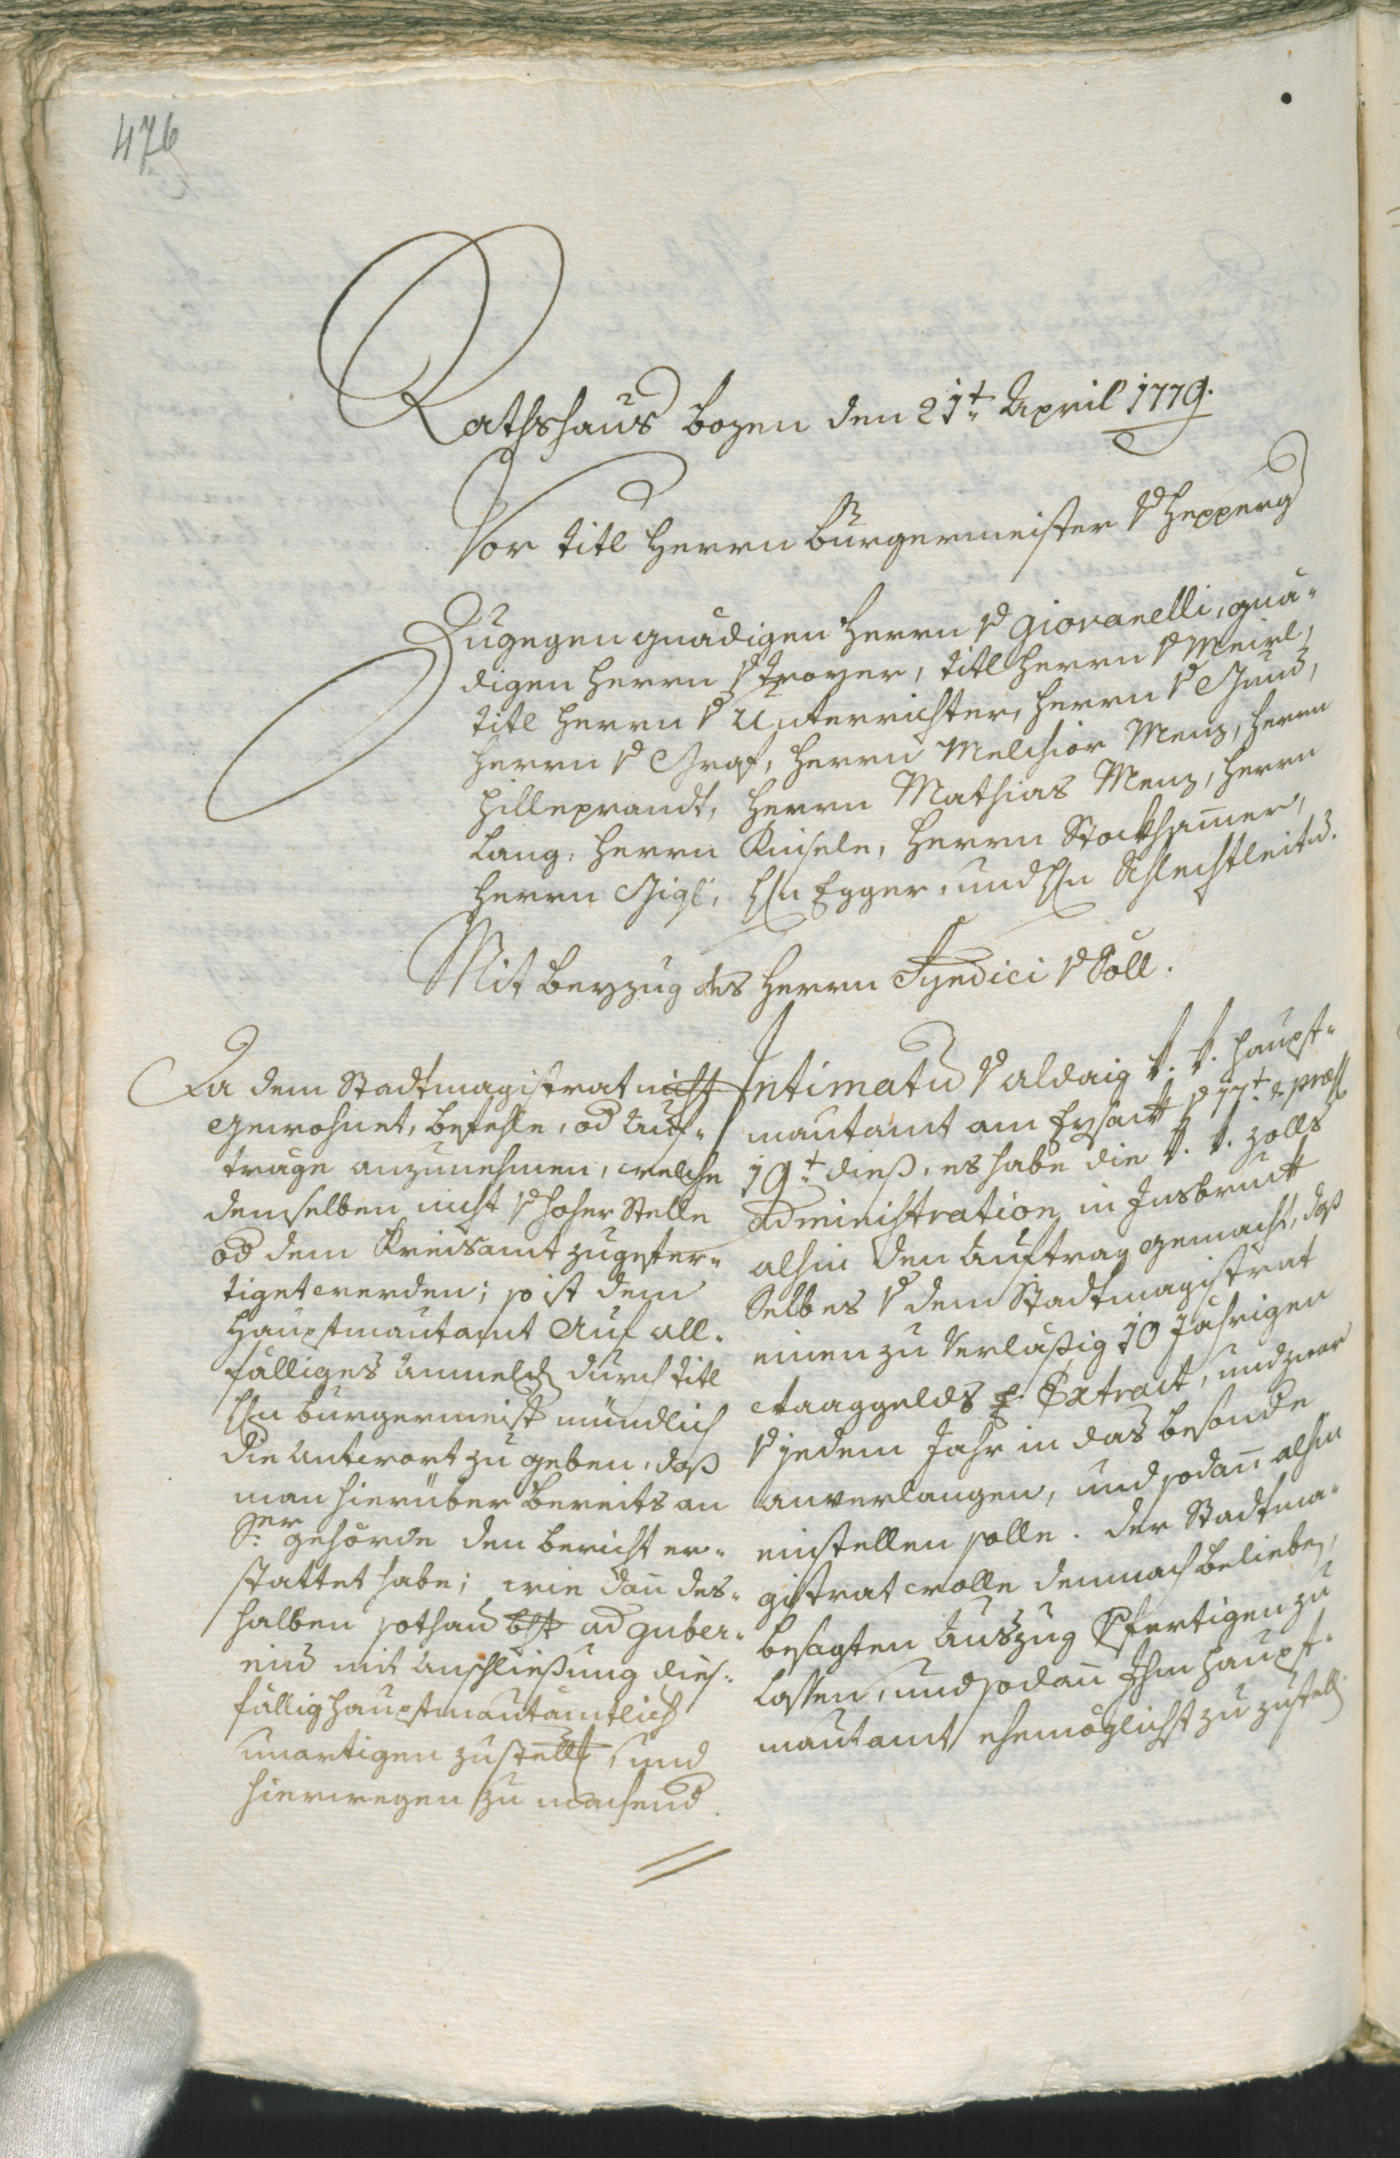 476
Rathshaus Bozen den 21t: April 1779.
Vor titl Herrn Burgermeister v Hepperg
Zugegen gnädigen Herrn v Giovanelli, gnä-
digen Herrn v Troyer, titl Herrn v Meirl,
titl Herrn v Unterrichter, Herrn v
Herrn v Graf, Herrn Melchior Menz, Herrn
Hilleprandt, Herrn Mathias Menz, Herrn
Lang, Herrn Kinsele, Herrn Stockhamer,
Herrn Gigl, Hn Egger, und Hn Schlechtleitn.
Mit beyzug des Herrn Syndici v Söll.
Da dem Stadtmagistrat nicht
gewohnet, befehle, od Auf-
träge anzunehmen, welche
demselben nicht v hoher Stelle
od dem Kreisamt zugefer-
tiget werden; so ist dem
Hauptmautamt auf all-
fälliges Anmeld durch titl
Hn burgermeist mündlich
die Antwort zu geben, daß
man hierüber bereits an
Ser gehörde den bericht er-
stattet habe; wie dan des-
halben sothan ad guber-
niu mit Anschließung dies-
fällig hauptmautämtlich
unartigen zustell, und
hierwegen zu machend.
Intimatu v alda k. k. Haupt-
mautamt am Eysackt v 17t: & præs
19t: dieß, es habe die k. k. Zolls
administration in Insbruckt
alhin den Auftrag gemacht, daß
Selbes v dem Stadtmagistrat
einen zu Verläßig 10 Jährigen
Waaggelds Extract, und zwar
v jedem Jahr in das besonde
anverlangen, und sodan alhin
einstellen solle. der Stadtma-
gistrat wolle demnach belieben,
besagten Auszug vfertigen zu
lassen, und sodan Ihm haupt-
mautamt ehemöglichst zu zustell